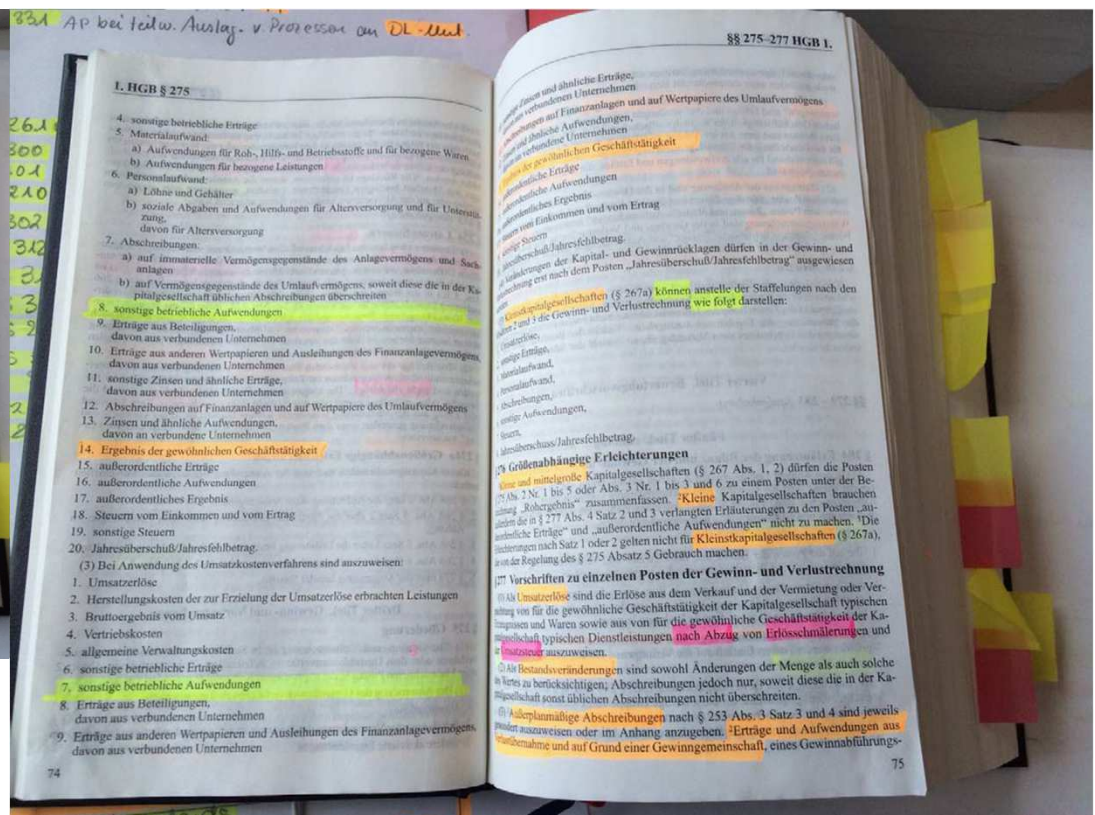 331 AP bei teilw. Auslag. v. Prozessen an DL-Unt.
261
300
01
210
302
312
1. HGB § 275
4. sonstige betriebliche Erträge
5. Materialaufwand:
a) Aufwendungen für Roh-, Hilfs- und Betriebsstoffe und für bezogene Waren
b) Aufwendungen für bezogene Leistungen
6. Personalaufwand:
a) Löhne und Gehälter
b) soziale Abgaben und Aufwendungen für Altersversorgung und für Unterstüt-
zung,
davon für Altersversorgung
7. Abschreibungen:
a) auf immaterielle Vermögensgegenstände des Anlagevermögens und Sach-
anlagen
b) auf Vermögensgegenstände des Umlaufvermögens, soweit diese die in der Ka-
pitalgesellschaft üblichen Abschreibungen überschreiten
8. sonstige betriebliche Aufwendungen
9. Erträge aus Beteiligungen,
davon aus verbundenen Unternehmen
10. Erträge aus anderen Wertpapieren und Ausleihungen des Finanzanlagevermögens,
davon aus verbundenen Unternehmen
11. sonstige Zinsen und ähnliche Erträge,
davon aus verbundenen Unternehmen
12. Abschreibungen auf Finanzanlagen und auf Wertpapiere des Umlaufvermögens
13. Zinsen und ähnliche Aufwendungen,
davon an verbundene Unternehmen
14. Ergebnis der gewöhnlichen Geschäftstätigkeit
15. außerordentliche Erträge
16. außerordentliche Aufwendungen
17. außerordentliches Ergebnis
18. Steuern vom Einkommen und vom Ertrag
19. sonstige Steuern
20. Jahresüberschuß/Jahresfehlbetrag.
(3) Bei Anwendung des Umsatzkostenverfahrens sind auszuweisen:
1. Umsatzerlöse
2. Herstellungskosten der zur Erzielung der Umsatzerlöse erbrachten Leistungen
3. Bruttoergebnis vom Umsatz
4. Vertriebskosten
5. allgemeine Verwaltungskosten
6. sonstige betriebliche Erträge
7. sonstige betriebliche Aufwendungen
8. Erträge aus Beteiligungen,
davon aus verbundenen Unternehmen
9. Erträge aus anderen Wertpapieren und Ausleihungen des Finanzanlagevermögens,
davon aus verbundenen Unternehmen
74
§§ 275–277 HGB 1.
Zinsen und ähnliche Erträge,
aus verbundenen Unternehmen
auf Finanzanlagen und auf Wertpapiere des Umlaufvermögens
und ähnliche Aufwendungen,
an verbundene Unternehmen
der gewöhnlichen Geschäftstätigkeit
außerordentliche Erträge
außerordentliche Aufwendungen
außerordentliches Ergebnis
Steuern vom Einkommen und vom Ertrag
sonstige Steuern
Jahresüberschuß/Jahresfehlbetrag.
Veränderungen der Kapital- und Gewinnrücklagen dürfen in der Gewinn- und
erst nach dem Posten „Jahresüberschuß/Jahresfehlbetrag“ ausgewiesen
Kleinstkapitalgesellschaften (§ 267a) können anstelle der Staffelungen nach den
2 und 3 die Gewinn- und Verlustrechnung wie folgt darstellen:
Umsatzerlöse,
sonstige Erträge,
Materialaufwand,
Personalaufwand,
Abschreibungen,
sonstige Aufwendungen,
Steuern,
Jahresüberschuss/Jahresfehlbetrag.
§ 276 Größenabhängige Erleichterungen
Kleine und mittelgroße Kapitalgesellschaften (§ 267 Abs. 1, 2) dürfen die Posten
Abs. 2 Nr. 1 bis 5 oder Abs. 3 Nr. 1 bis 3 und 6 zu einem Posten unter der Be-
„Rohergebnis“ zusammenfassen. ²Kleine Kapitalgesellschaften brauchen
die in § 277 Abs. 4 Satz 2 und 3 verlangten Erläuterungen zu den Posten „au-
Erträge“ und „außerordentliche Aufwendungen“ nicht zu machen. ³Die
nach Satz 1 oder 2 gelten nicht für Kleinstkapitalgesellschaften (§ 267a),
die von der Regelung des § 275 Absatz 5 Gebrauch machen.
§ 277 Vorschriften zu einzelnen Posten der Gewinn- und Verlustrechnung
(1) Als Umsatzerlöse sind die Erlöse aus dem Verkauf und der Vermietung oder Ver-
von für die gewöhnliche Geschäftstätigkeit der Kapitalgesellschaft typischen
Erzeugnissen und Waren sowie aus von für die gewöhnliche Geschäftstätigkeit der Ka-
typischen Dienstleistungen nach Abzug von Erlösschmälerungen und
der Umsatzsteuer auszuweisen.
(2) Als Bestandsveränderungen sind sowohl Änderungen der Menge als auch solche
des Wertes zu berücksichtigen; Abschreibungen jedoch nur, soweit diese die in der Ka-
pitalgesellschaft sonst üblichen Abschreibungen nicht überschreiten.
(3) ¹Außerplanmäßige Abschreibungen nach § 253 Abs. 3 Satz 3 und 4 sind jeweils
gesondert auszuweisen oder im Anhang anzugeben. ²Erträge und Aufwendungen aus
Verlustübernahme und auf Grund einer Gewinngemeinschaft, eines Gewinnabführungs-
75